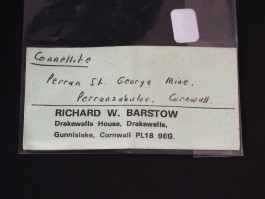 Connellite
Perran St. George Mine.
Perranzabuloe. Cornwall.
RICHARD W. BARSTOW
Drakewalls House, Drakewalls,
Gunnislake, Cornwall PL18 9EG.